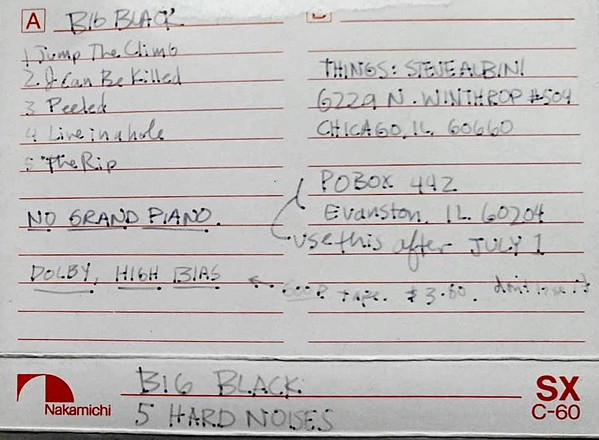 A BIG BLACK
1 Jump The Climb
2. I Can Be Killed
3 Peeled
4 Live in a hole
5 The Rip
NO GRAND PIANO.
DOLBY, HIGH BIAS ← GOOD tape. don't lose it
B
THINGS: STEVE ALBINI
6229 N. WINTHROP #504
CHICAGO, IL 60660
PO BOX 442
Evanston, IL 60204
use this after JULY 1
Nakamichi
BIG BLACK
5 HARD NOISES
SX
C-60